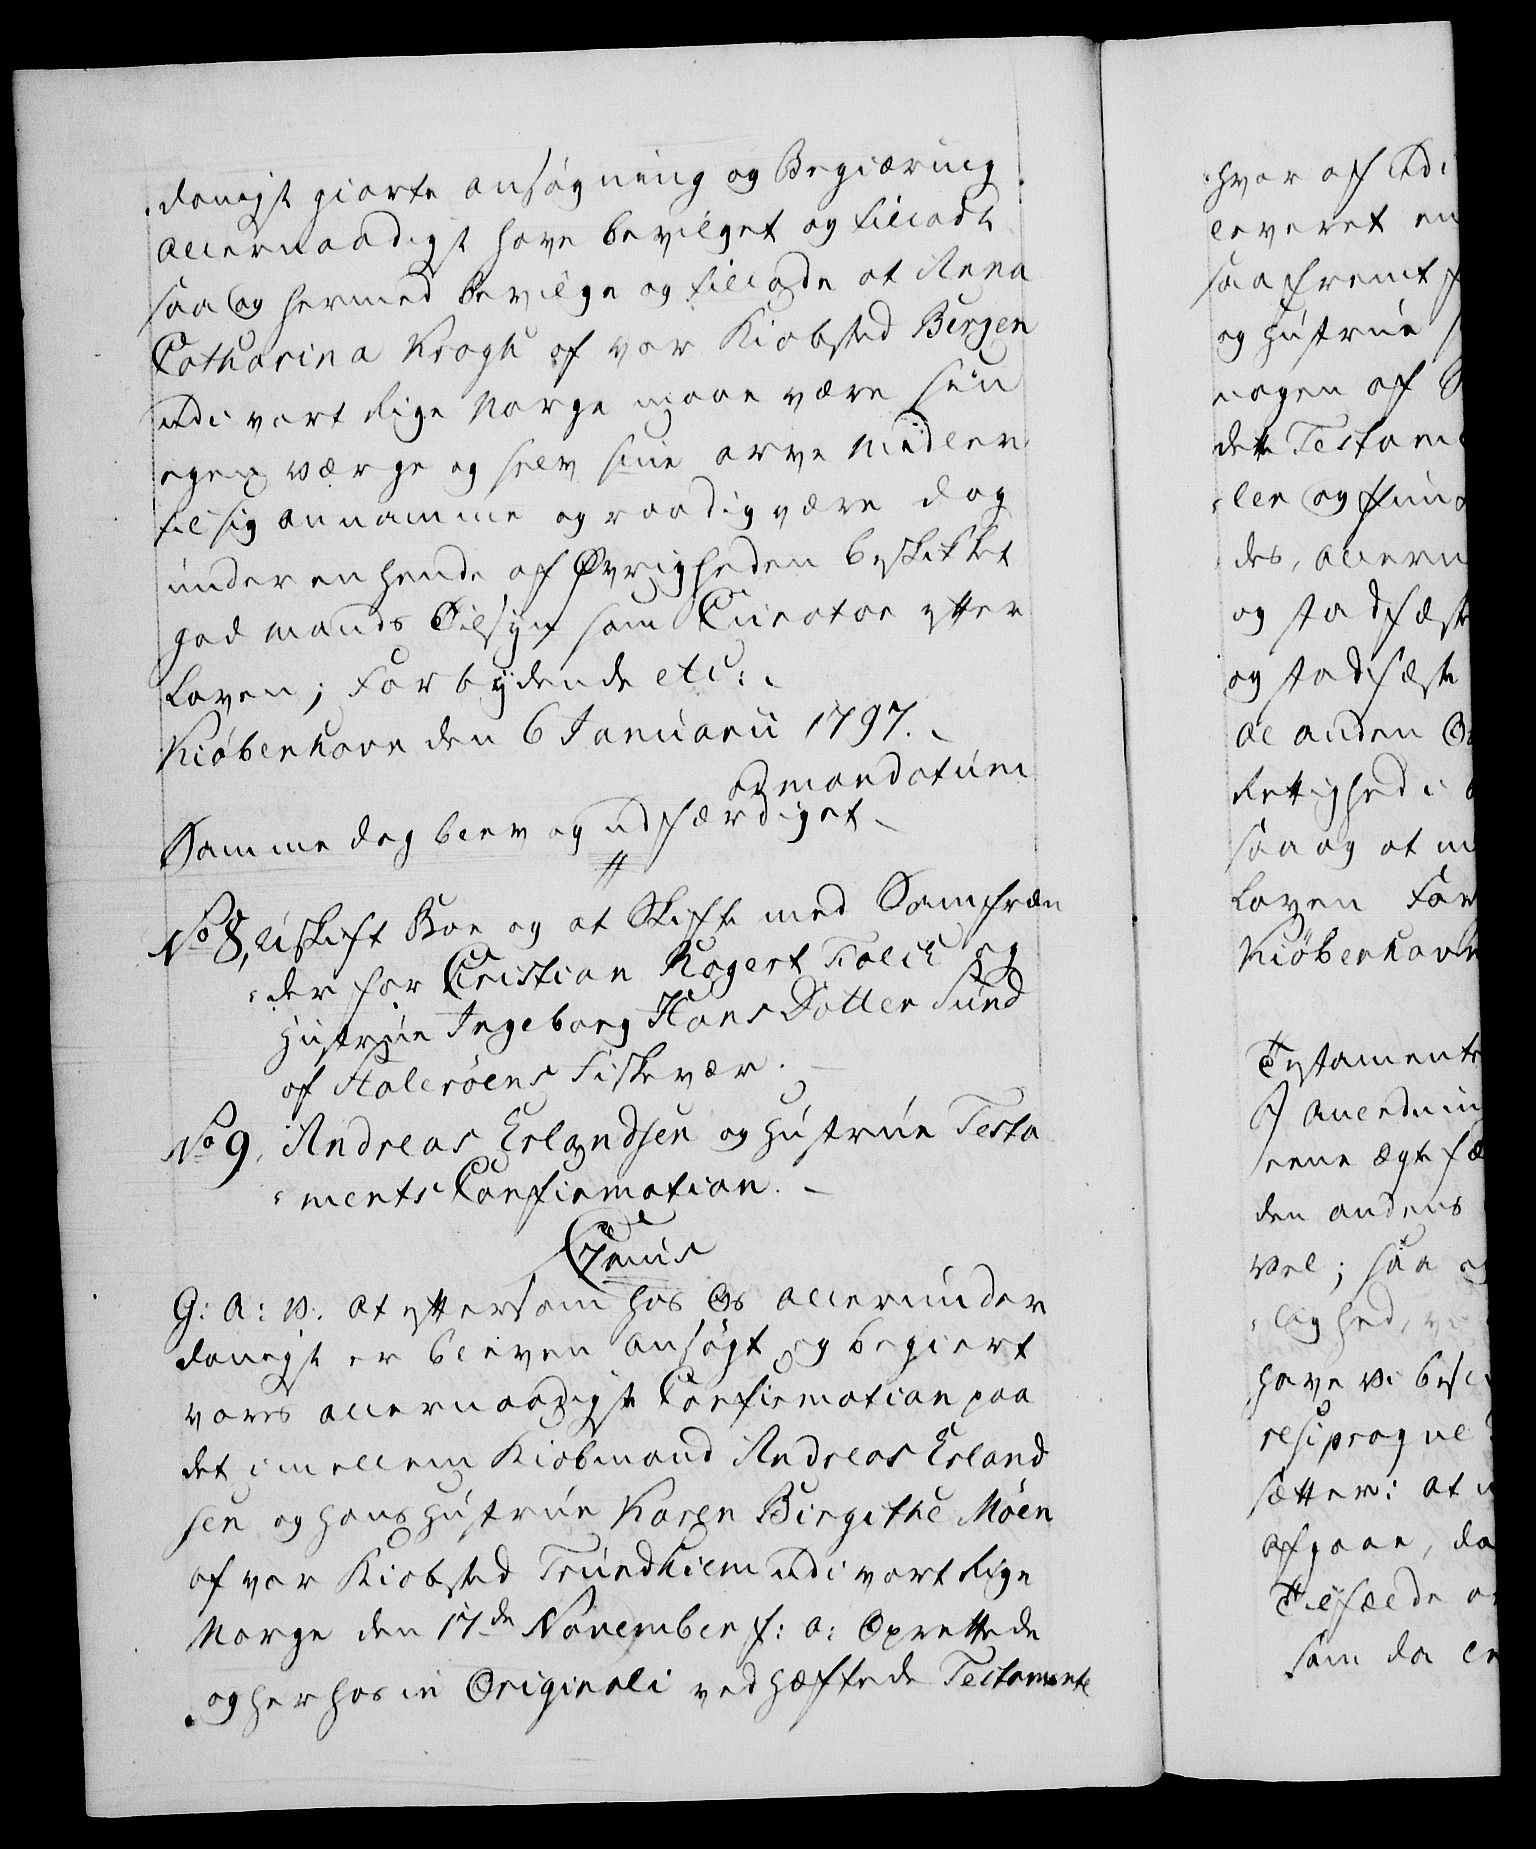 danigst giorte ansøgning og Begiæring
allernaadigst have bevilget og tilladt
saa og hermed bevilge og tillade at Anna
Catharina Krogh af vor Kiøbsted Bergen
udi vort Rige Norge maae være sin
egen værge og selv sine arve Midler
til sig annamme og raadig være dog
under en hende af Øvrigheden beskikket
god mands Tilsyn som Curator efter
Loven; Forbydende etc:
Kiøbenhavn den 6 Januarii 1797.
ad mandatum
Samme dag blev og udfærdiget
No 8, Uskift Boe og at Skifte med Samfræn
der for Cristian Rogert Falch og
Hustrue Ingeborg Hans Dotter Sund
af Halsröens Fiskevær.
No 9. Andreas Erlandsen og Hustrue Testa
ments Confirmation.
C7mus
G: A: V: at eftersom hos Os allerunder
danigst er bleven ansøgt og begiert
vores allernaadigste Confirmation paa
det imellem Kiøbmand Andreas Erland
sen og hans Hustrue Karen Birgithe Möen
af vor Kiøbsted Trundhiem udi vort Rige
Norge den 17de November f: a: Oprettede
og herhos in Originali vedhæftede Testamente
hvor af Udi
leveret en
saafremt
og Hustrue
nogen af
dette Testam
ler og fun
des, allern
og stadfæste
og stadfæste
al anden
Rettighed i
saa og at
Loven For
Kiøbenhavn
Testamente
J anledning
eene ægtefæ
den andens
vel; saa
lighed,
have vi besl
resiproque
sætter: at
afgaae, da
Tilfælde
som da